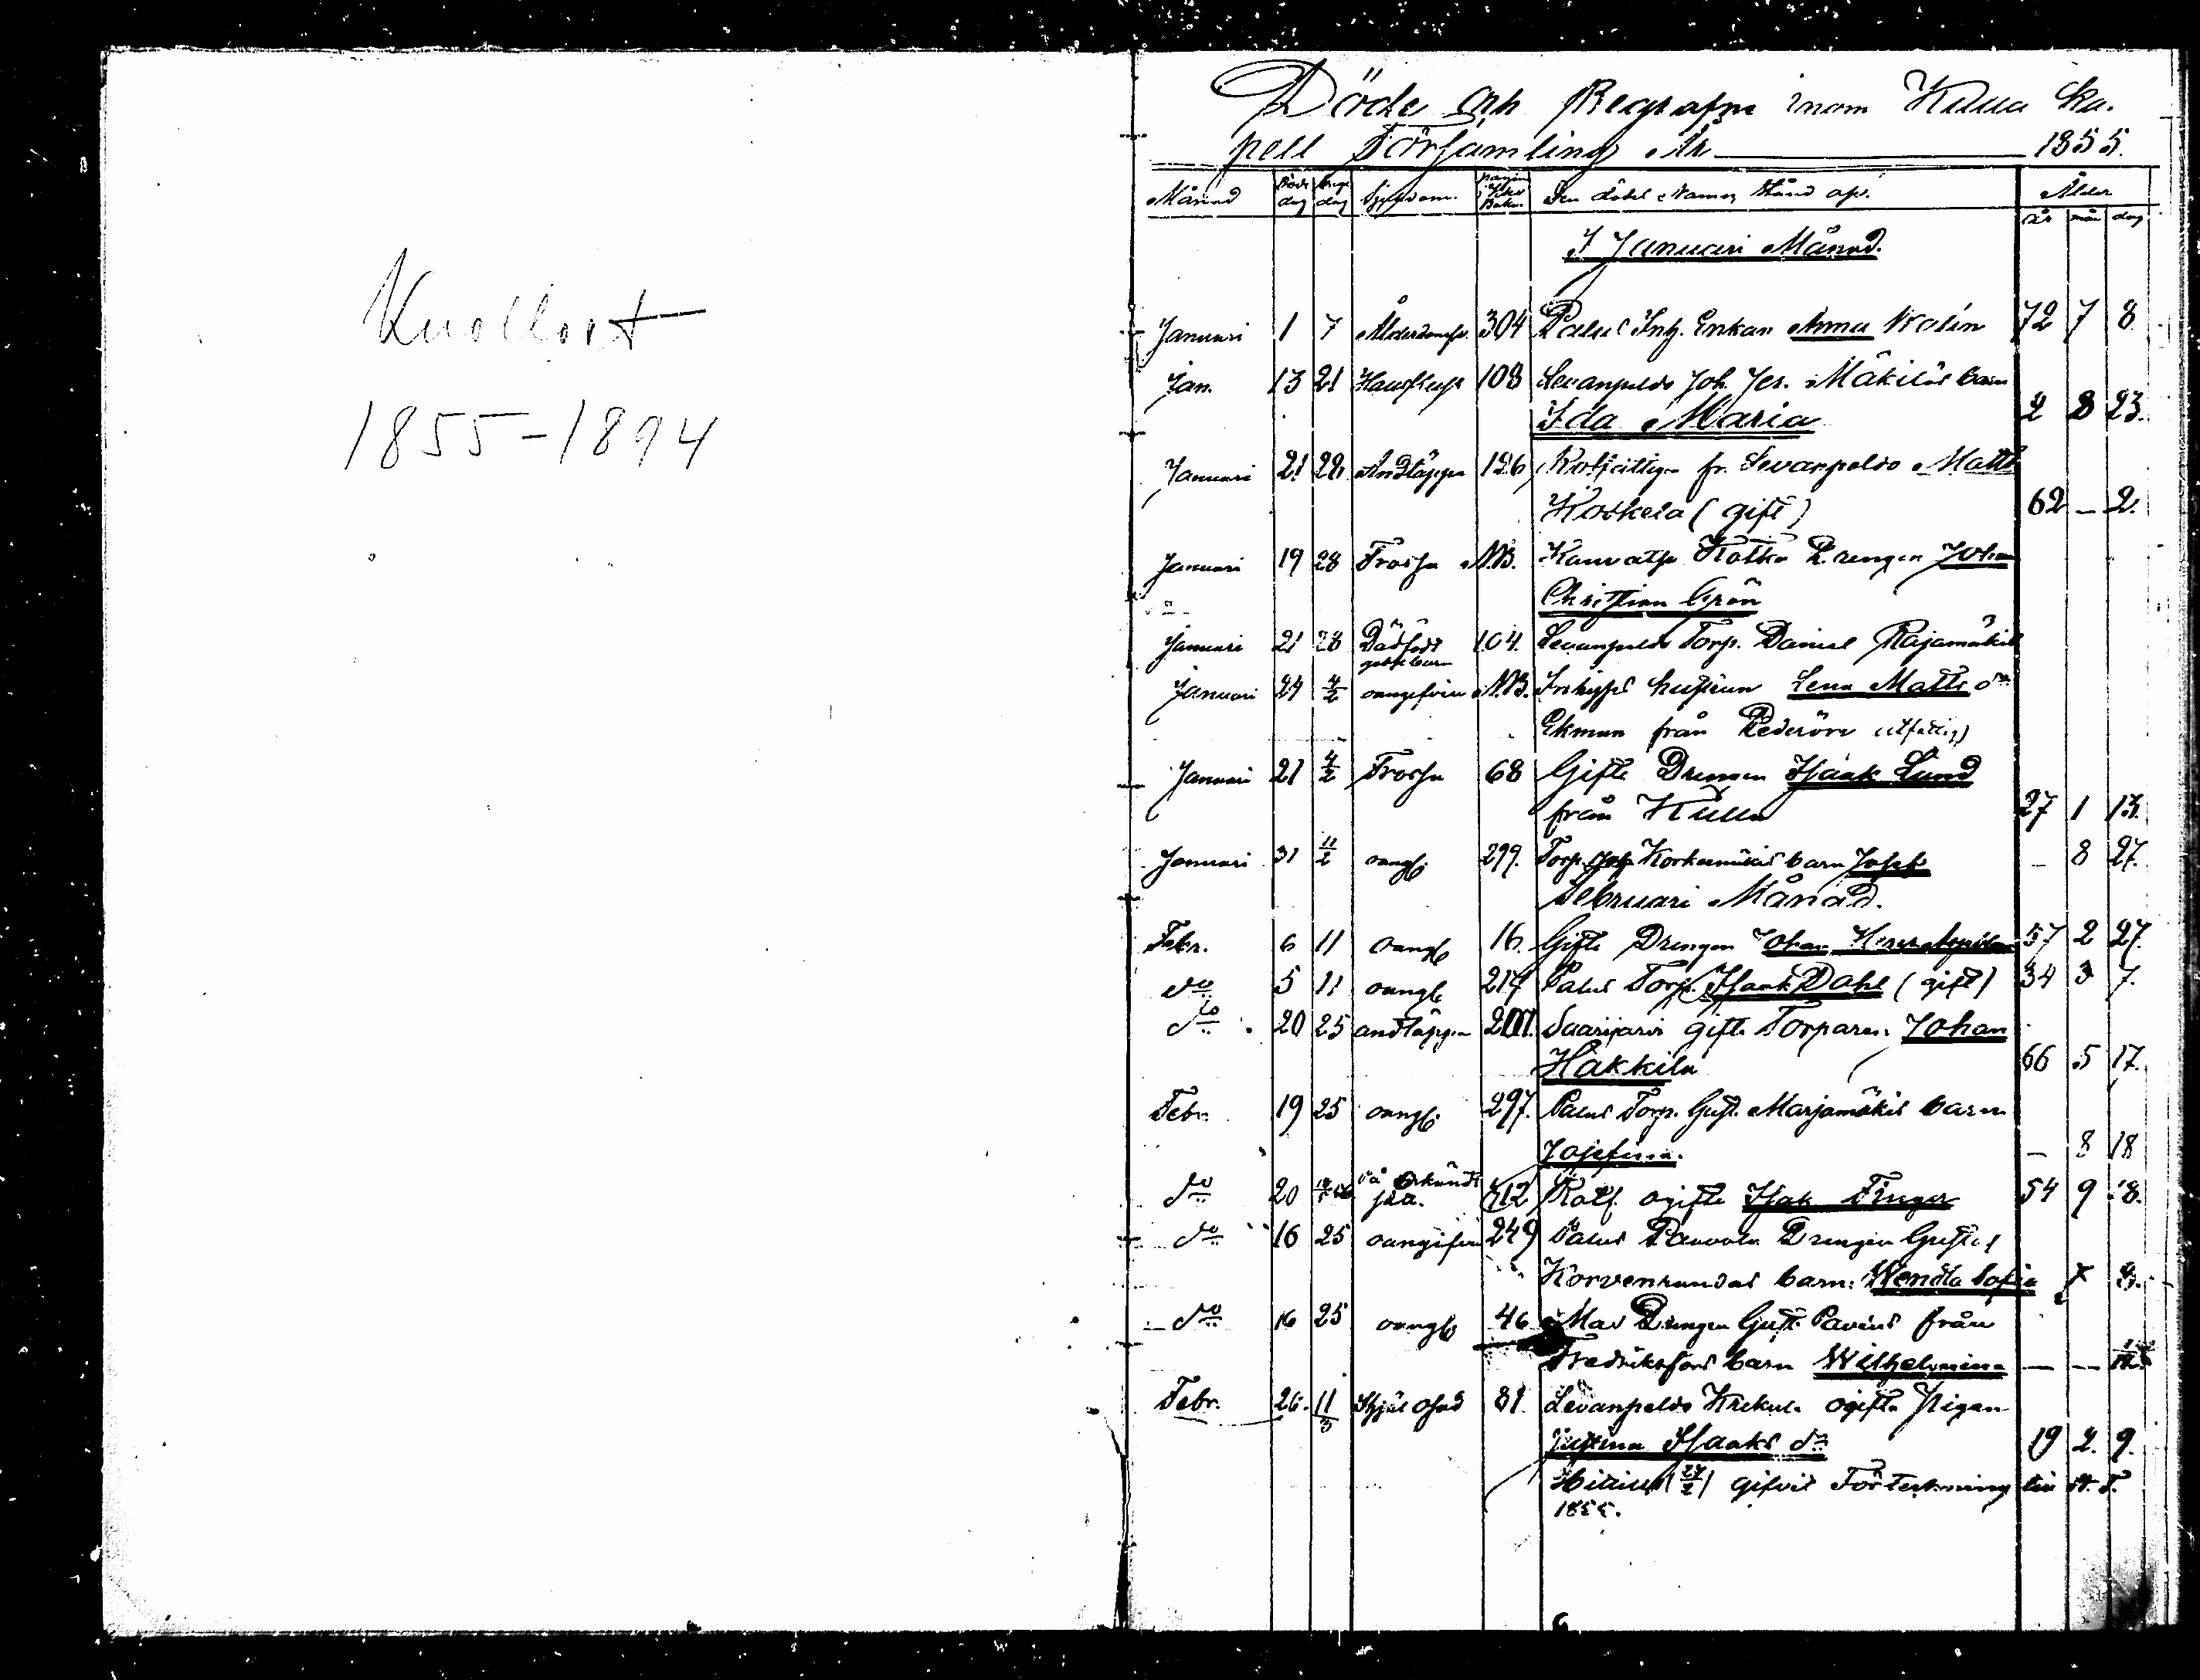 Kuolleet
1855-1894
Döde och Begrafne inom Kulla ka-
pell Församling År 1855.
Månad Död dag Begr dag Sjukdom. pagina i Kyrko Boken Den dödes Namn, Stånd o.s.v. Ålder
år mån dag
I Januari Månad.
Januari 1 7 Ålderdomsf. 304 Palus Inh. Enkan Anna Wolin 72 7 8
Jan. 13 21 108 Levanpelds Joh. Jer. Mäkiläs barn
Ida Maria 2 8 23.
Januari 21 28 Andtäppa 126 fr. Levanpelds Matts
Koskela (gift) 62 – 2.
Januari 19 28 Frossa N.B. Kotka Drengen Johan
Christian Grön
Januari 21 28 Dödfödt gossebarn 104. Levanpelds Torp. Daniel Rajamäkis
Januari 24 4/2 oangifven N.B. Inhyses hustrun Lena Matts dr
Ekman från Pedersöre (utfattig)
Januari 21 4/2 Frossa 68 Gifte Drengen Isaak Lund
från Kulla 27 1 13.
Januari 31 11/2 oangf. 299. Torp. Korkeamäkis barn Josef – 8 27.
Februari Månad.
Febr. 6 11 oangf 16. Gifte Drengen Johan 57 2 27.
do 5 11 oangf 214 Palus Torp. Isaak Dahl (gift) 34 3 7.
do 20 25 andtäppa Saarijärvi gifte Torparen Johan
Hakkila 66 5 17.
Febr. 19 25 oangf. 297. Palus Torp. Gust. Marjamäkis barn
Josefina. – 8 18
do 20 312 ogifte Isak Finger 54 9 18.
do 16 25 oangifven 249 Palus Paavola Drengen Gustaf
Korvenrandas barn: Wendla Sofia
do 16 25 oangf 46 Drengen Gust. Pavins från
Fredriksfors barn Wilhelmina – –
Febr. 26. 11/3 81 Levanpelds Krekula ogifta Pigan
Justina Isaaks dr 19 2. 9.
Hitills (27/2) gifvit Förteckning
1855.